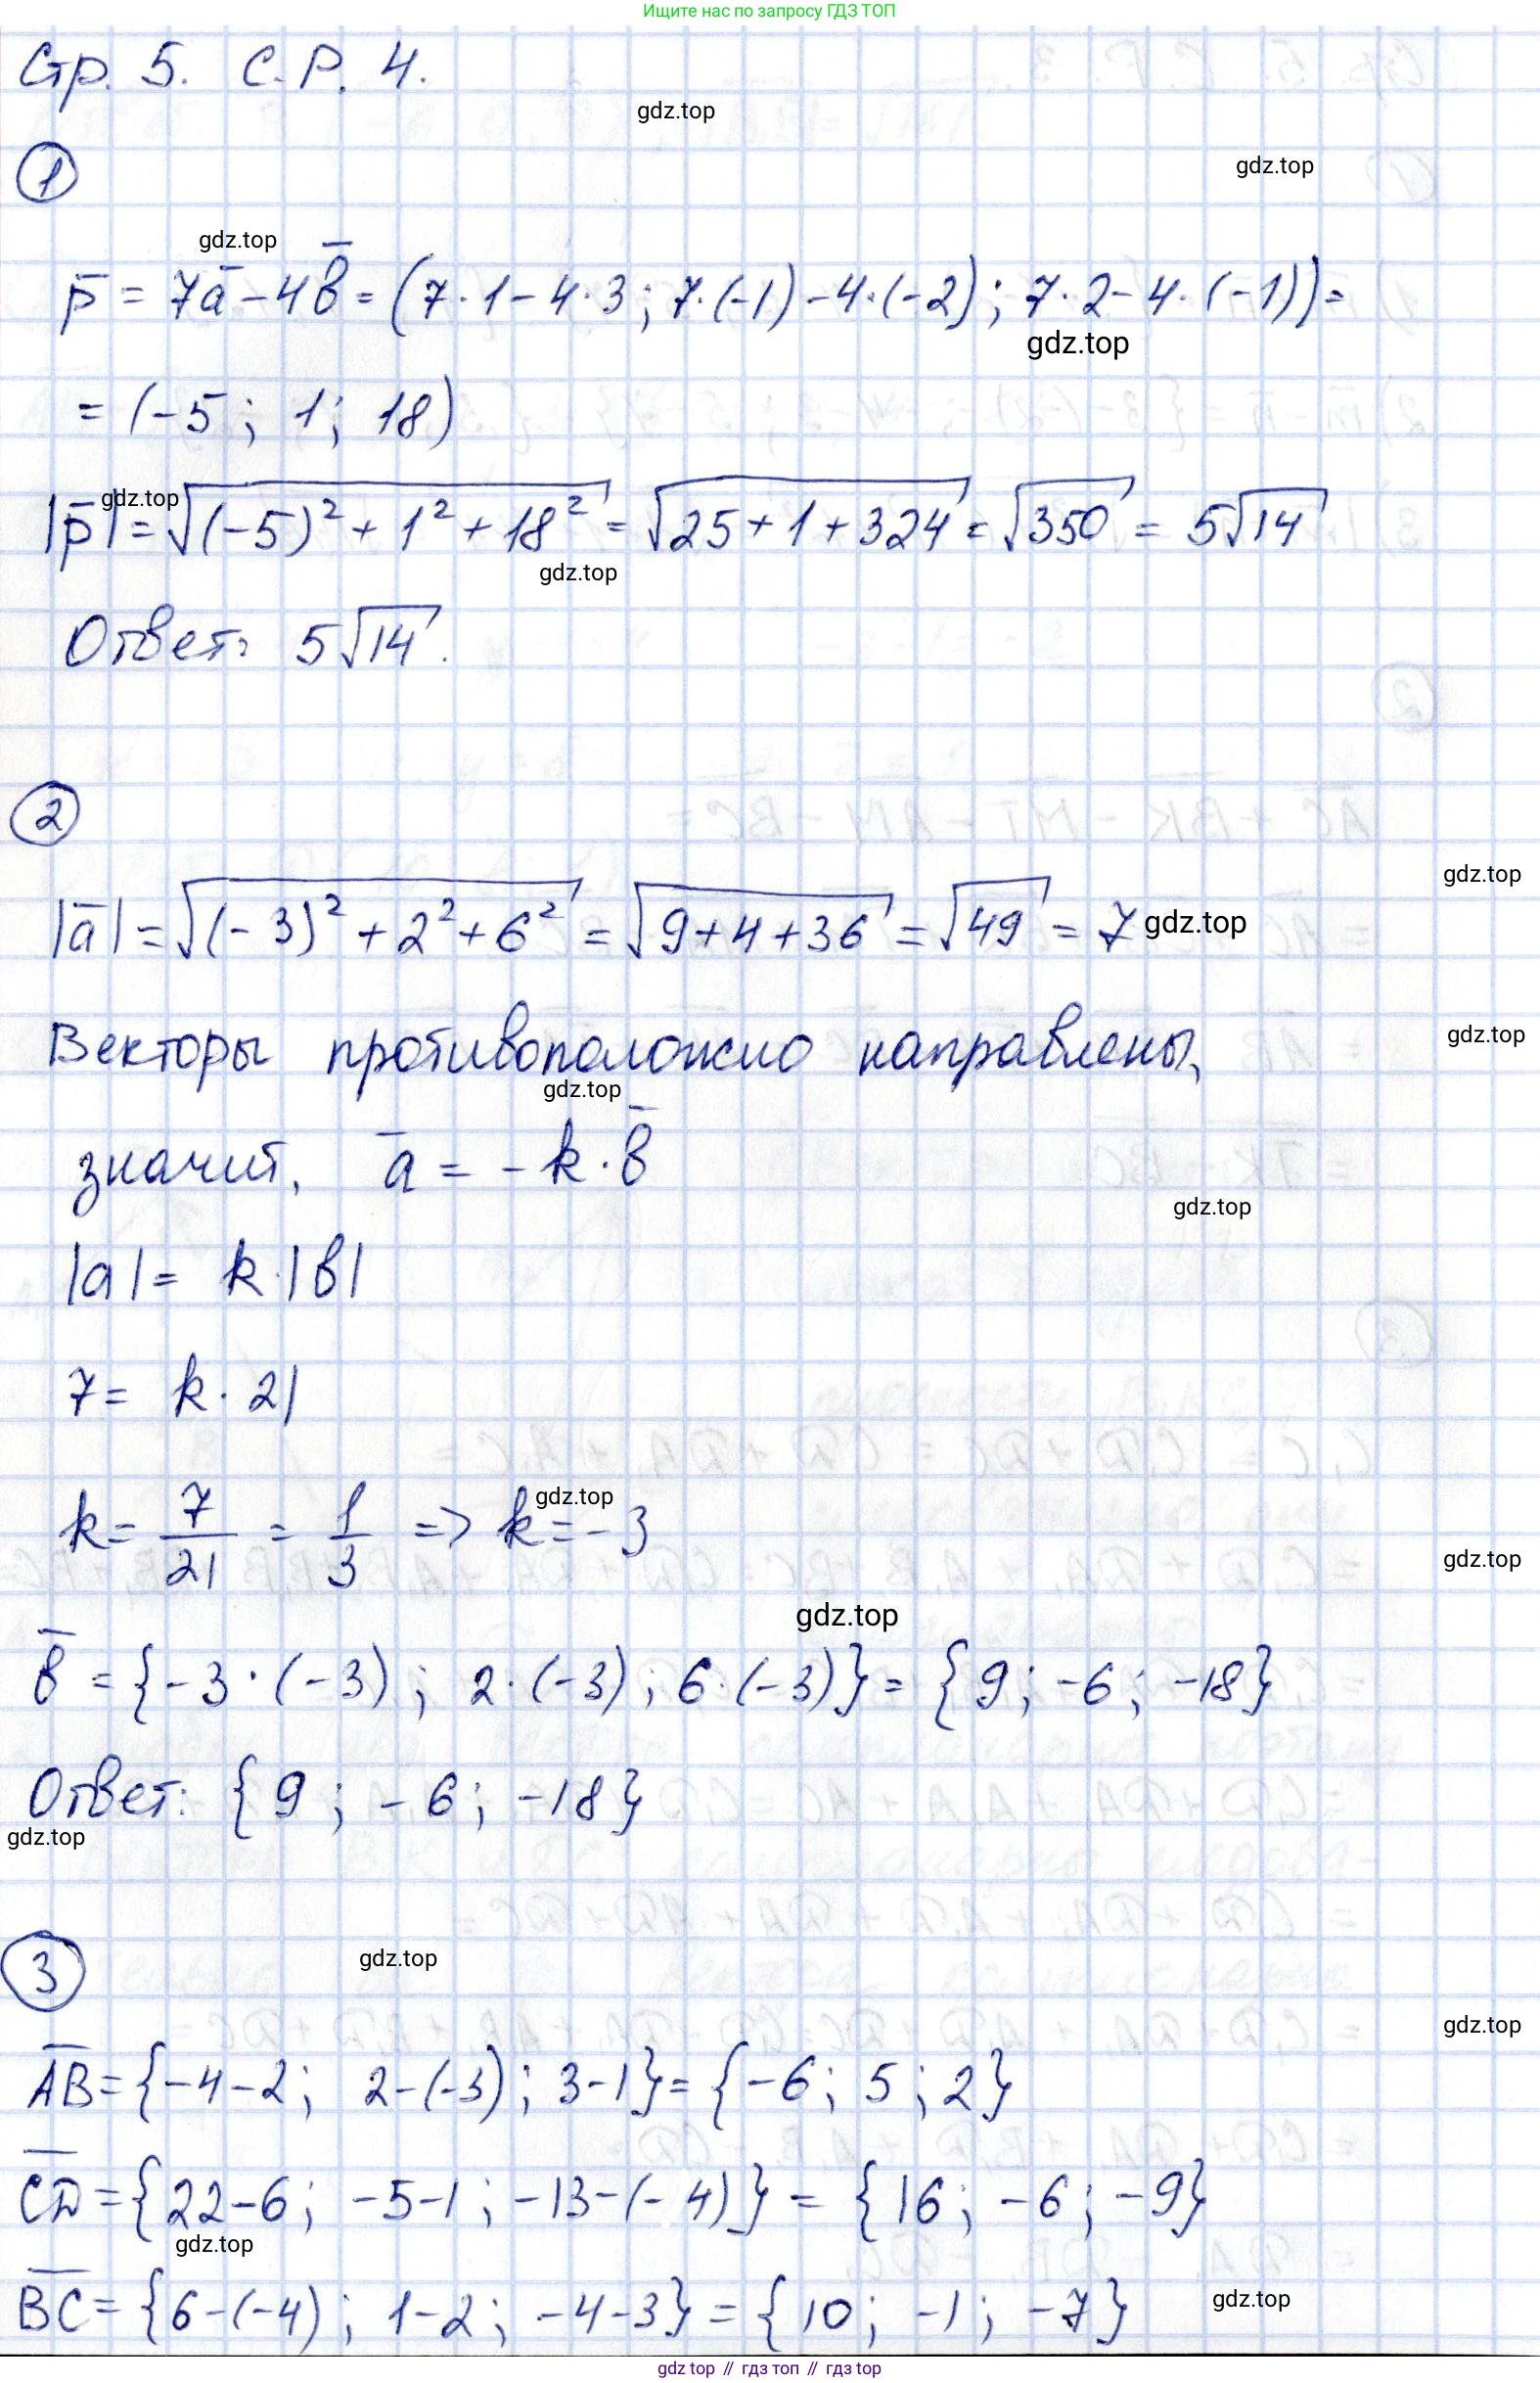 Ищите нас по запросу ГДЗ ТОП
Стр. 5. С.Р. 4.
gdz.top
1
gdz.top
gdz.top
p̅ = 7a̅ - 4b̅ = (7·1-4·3; 7·(-1)-4·(-2); 7·2-4·(-1)) =
gdz.top
= (-5; 1; 18)
gdz.top
|p̅| = √((-5)² + 1² + 18²) = √(25+1+324) = √350 = 5√14
gdz.top
Ответ: 5√14.
2
gdz.top
|a̅| = √((-3)² + 2² + 6²) = √(9+4+36) = √49 = 7
gdz.top
Векторы противоположно направлены,
gdz.top
gdz.top
значит, a̅ = -k·b̅
gdz.top
|a| = k·|b|
7 = k·21
gdz.top
k = 7/21 = 1/3 => k = -3
gdz.top
gdz.top
b̅ = {-3·(-3); 2·(-3); 6·(-3)} = {9; -6; -18}
Ответ: {9; -6; -18}
gdz.top
3
gdz.top
gdz.top
A̅B̅ = {-4-2; 2-(-3); 3-1} = {-6; 5; 2}
C̅D̅ = {22-6; -5-1; -13-(-4)} = {16; -6; -9}
gdz.top
B̅C̅ = {6-(-4); 1-2; -4-3} = {10; -1; -7}
gdz.top
gdz top // гдз топ // гдз top